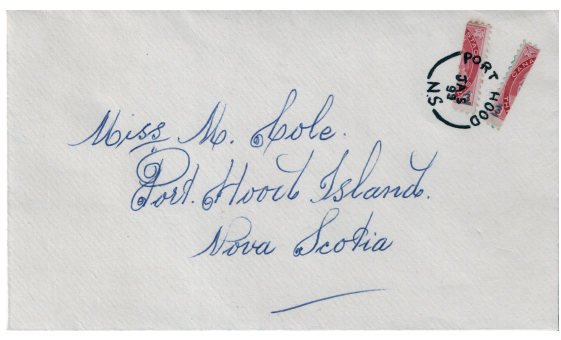 PORT HOOD
JA 5
99
N.S.
CANA
Miss M. Cole.
Port Hood Island.
Nova Scotia